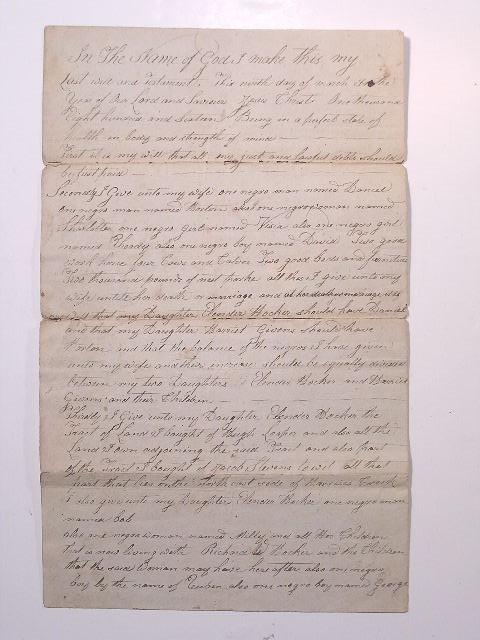 In The Name of God I make this my
last will and Testament. This ninth day of march in the
Year of Our Lord and Saviour Jesus Christ One thousand
Eight hundred and sixteen Being in a perfect state of
health in body and strength of mind —
First it is my will that all my just and lawful debts should
be first paid —
Secondly I Give unto my wife one negro man named Daniel
one negro man named Burton also one negro woman named
Charlotter one negro girl named also one negro girl
named Rhody also one negro boy named David Two good
work horses four Cows and Calves Two good beds and furniture
Two thousand pounds of nett porke all these I give unto my
wife untill her death or marriage and at her death or marriage it is
my will that my Daughter Elender Hocker should have Daniel
and that my Daughter Harriet Givens should have
Burton and that the balance of the negros I have given
unto my wife and their increase should be equally divided
between my two Daughters Elender Hocker and Harriet
Givens and their Children
Thirdly I Give unto my Daughter Elender Hocker the
Tract of Land I bought of Hugh and also all the
Land I own adjoining the said Tract and also part
of the Tract I bought of Jacob Stevens to wit all that
part that lies on the North east side of Creek
I also give unto my Daughter Elender Hocker one negro man
named bob
also one negro woman named Milly and all Her Children
that is now living with Richard Hocker and the Children
that the said Woman may have here after also one negro
boy by the name of Reuben also one negro boy named George